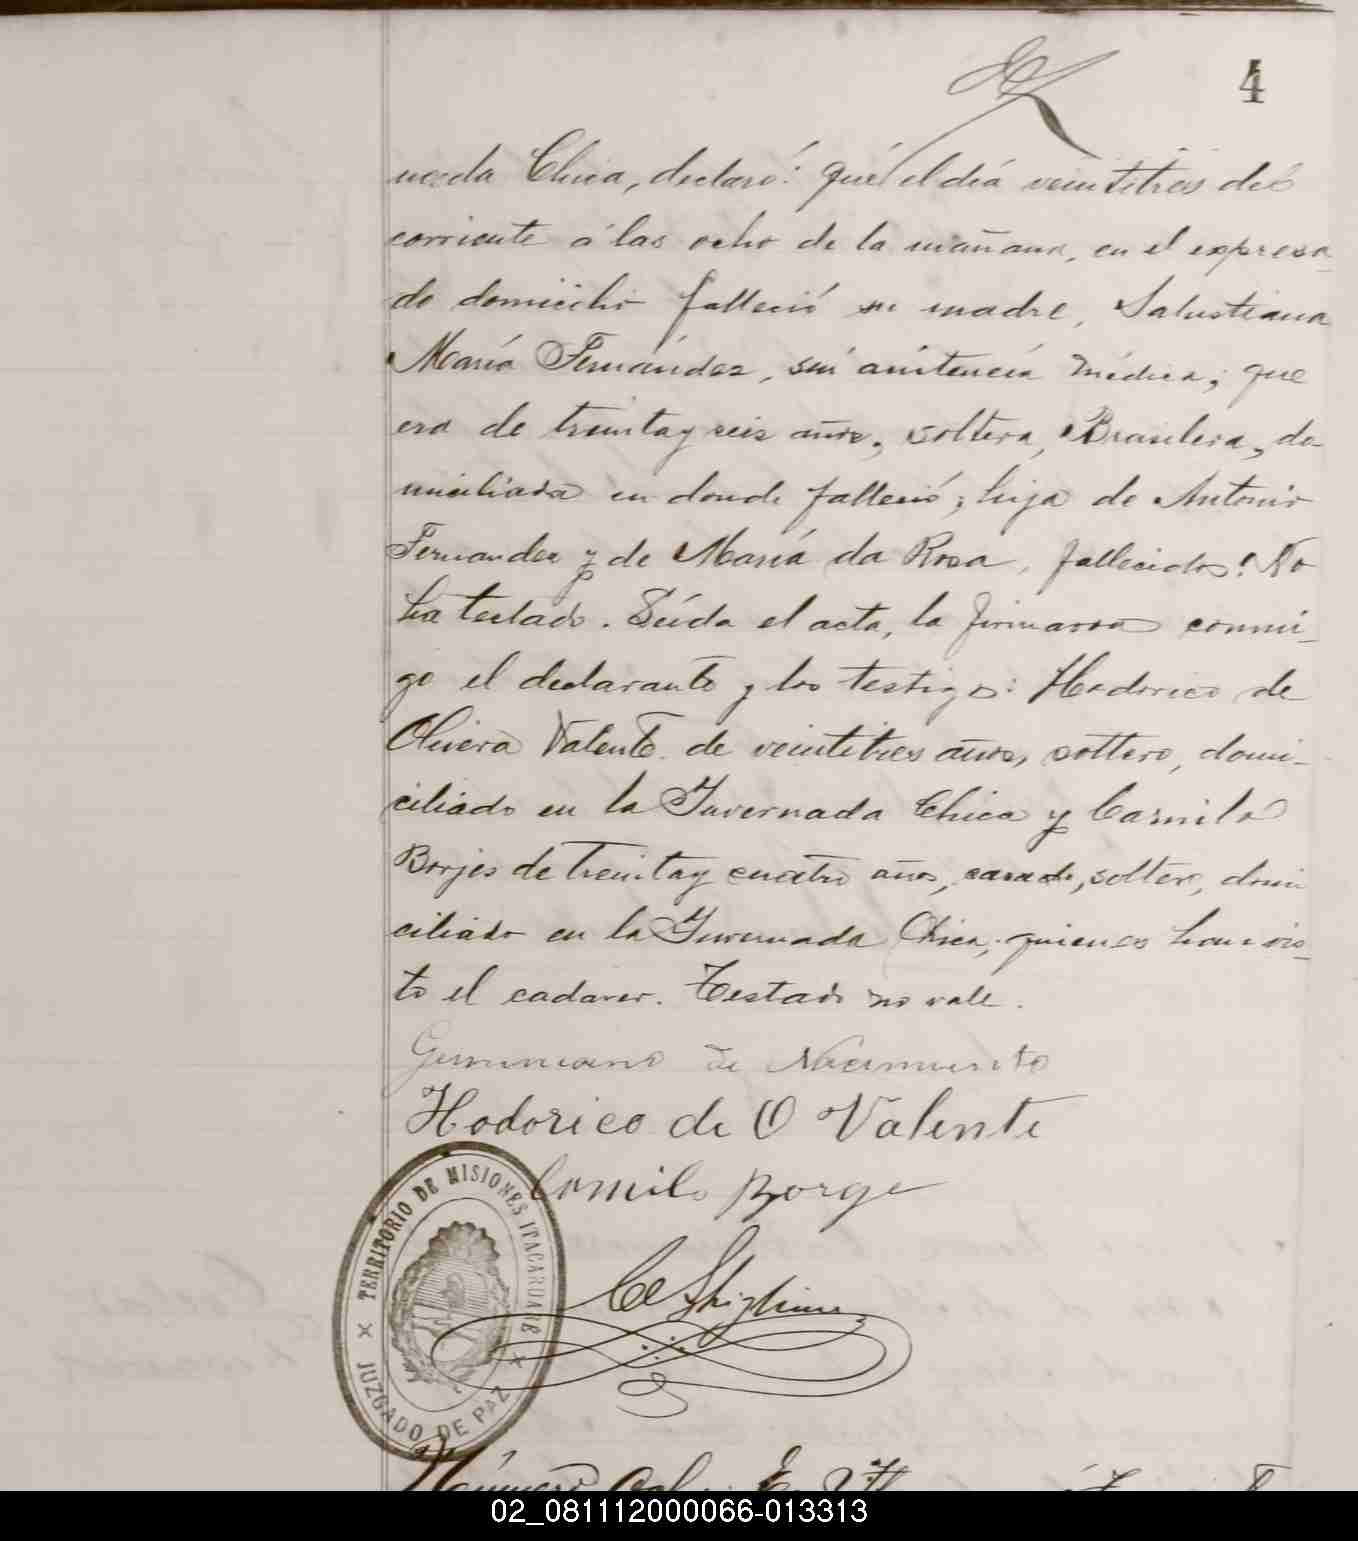 4
nada Chica, declaró: que el día veintitres del
corriente á las ocho de la mañana, en el expresa_
do domicilio falleció su madre, Salustiana
María Fernández, sin asistencia médica; que
era de treinta y seis años, soltera, Brasilera, do-
miciliada en donde falleció; hija de Antonio
Fernandez y de María da Rosa, fallecidos. No
ha testado. Leída el acta, la firmaron conmi_
go el declarante y los testigos: Hodorico de
Olivera Valente de veintitres años, soltero, domi-
ciliado en la Invernada Chica y Camilo
Borjes de treinta y cuatro años, casado, soltero, domi
ciliado en la Invernada Chica; quienes han vis_
to el cadaver. Testado no vale.
de Nacimiento
Hodorico de O Valente
Camilo Borge
TERRITORIO DE MISIONES ITACARUARE
JUZGADO DE PAZ
Número
02_081112000066-013313